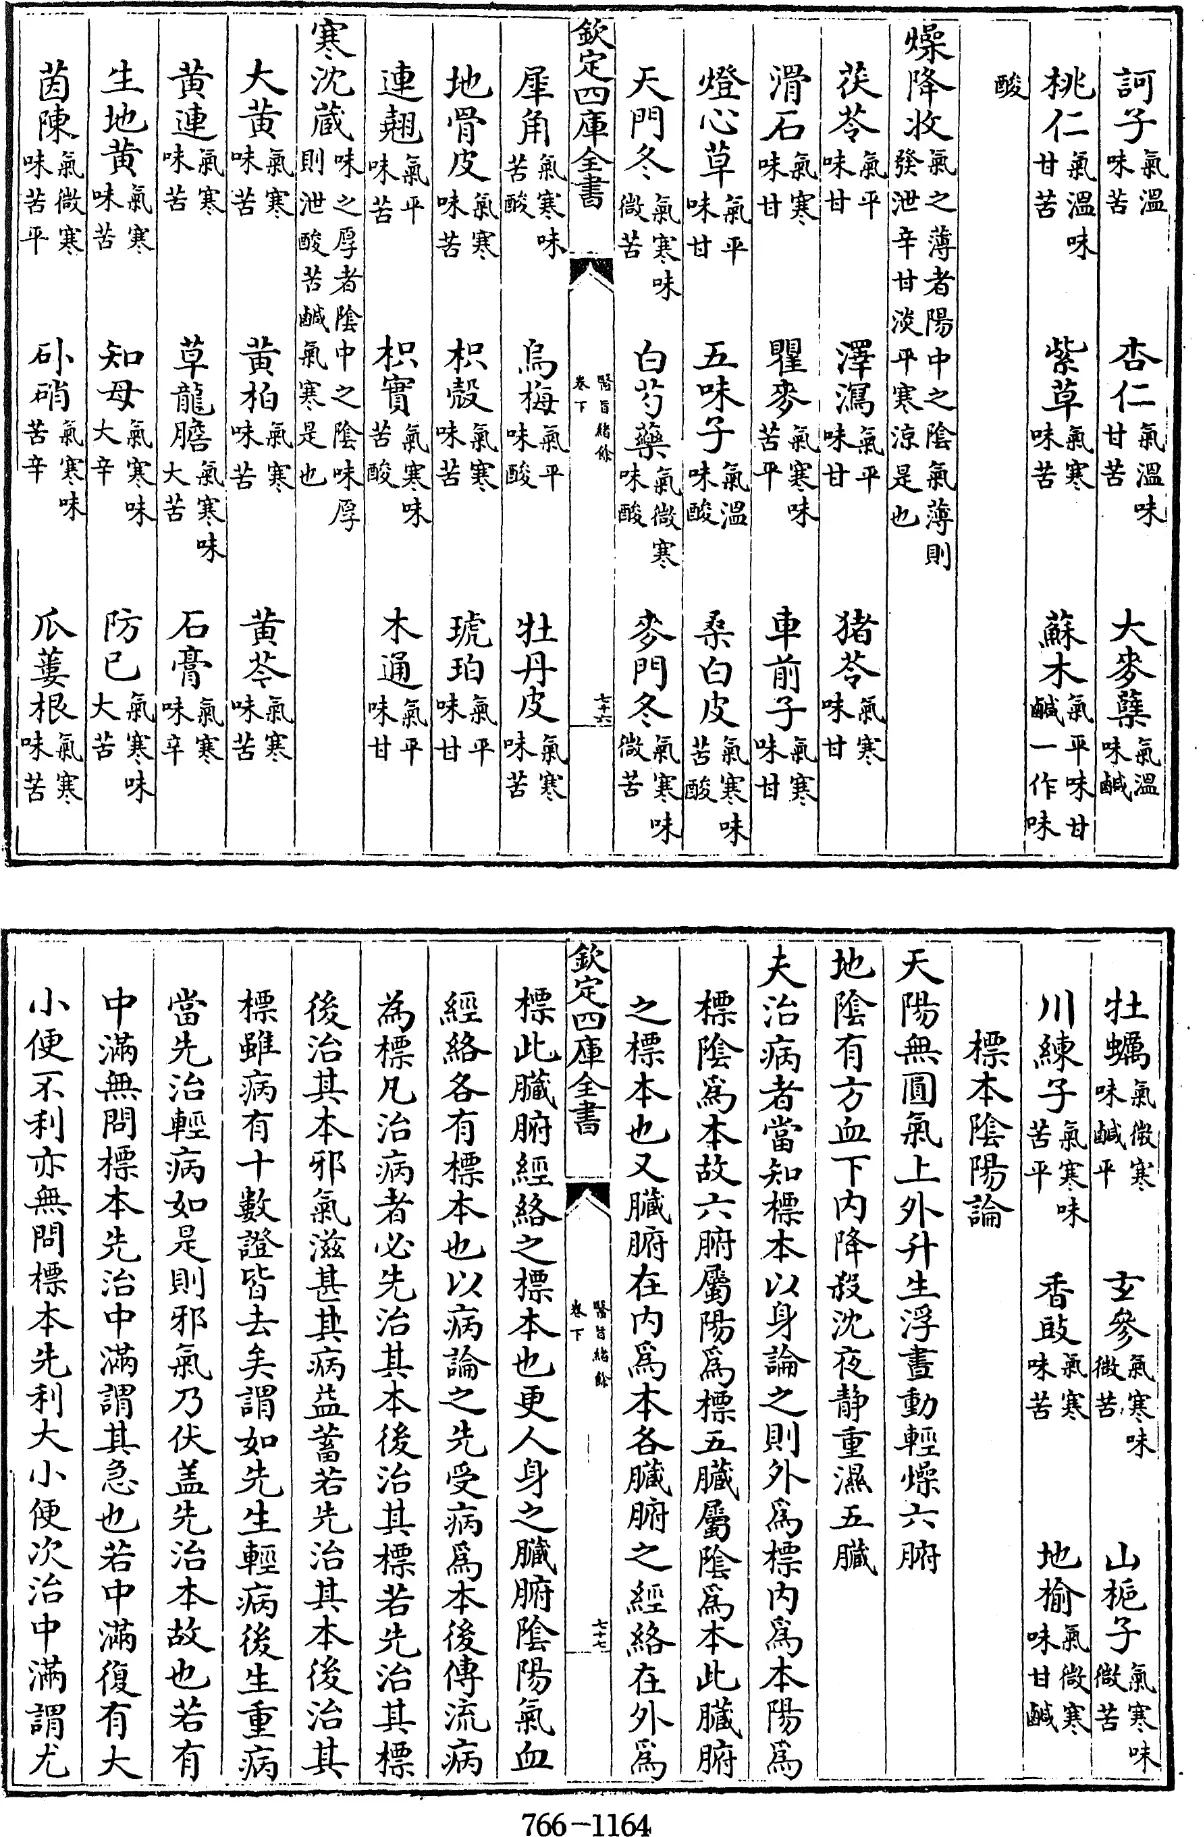 訶子氣溫味苦 杏仁氣溫味甘苦 大麥蘖氣溫味鹹
桃仁氣溫味甘苦 紫草氣寒味苦 蘇木氣平味甘鹹一作味
酸
燥降收氣之薄者陽中之陰氣薄則發泄辛甘淡平寒涼是也
茯苓氣平味甘 澤瀉氣平味甘 猪苓氣寒味甘
滑石氣寒味甘 瞿麥氣寒味苦平 車前子氣寒味甘
燈心草氣平味甘 五味子氣溫味酸 桑白皮氣寒味苦酸
天門冬氣寒味微苦 白芍藥氣微寒味酸 麥門冬氣寒味微苦
欽定四庫全書 醫旨緒餘卷下 七十六
犀角氣寒味苦酸 烏梅氣平味酸 牡丹皮氣寒味苦
地骨皮氣寒味苦 枳殼氣寒味苦 琥珀氣平味甘
連翹氣平味苦 枳實氣寒味苦酸 木通氣平味甘
寒沈藏味之厚者陰中之陰味厚則泄酸苦鹹氣寒是也
大黃氣寒味苦 黃柏氣寒味苦 黃芩氣寒味苦
黃連氣寒味苦 草龍膽氣寒味大苦 石膏氣寒味辛
生地黃氣寒味苦 知母氣寒味大辛 防已氣寒味大苦
茵陳氣微寒味苦平 朴硝氣寒味苦辛 瓜蔞根氣寒味苦
牡蠣氣微寒味鹹平 玄參氣寒味微苦 山梔子氣寒味微苦
川練子氣寒味苦平 香豉氣寒味苦 地榆氣微寒味甘鹹
標本陰陽論
天陽無圓氣上外升生浮晝動輕燥六腑
地陰有方血下内降殺沈夜静重濕五臟
夫治病者當知標本以身論之則外為標内為本陽為
標陰為本故六腑屬陽為標五臟屬陰為本此臟腑
之標本也又臟腑在内為本各臟腑之經絡在外為
欽定四庫全書 醫旨緒餘卷下 七十七
標此臟腑經絡之標本也更人身之臟腑陰陽氣血
經絡各有標本也以病論之先受病為本後傳流病
為標凡治病者必先治其本後治其標若先治其標
後治其本邪氣滋甚其病益蓄若先治其本後治其
標雖病有十數證皆去矣謂如先生輕病後生重病
當先治輕病如是則邪氣乃伏盖先治本故也若有
中滿無問標本先治中滿謂其急也若中滿復有大
小便不利亦無問標本先利大小便次治中滿謂尤
766-1164